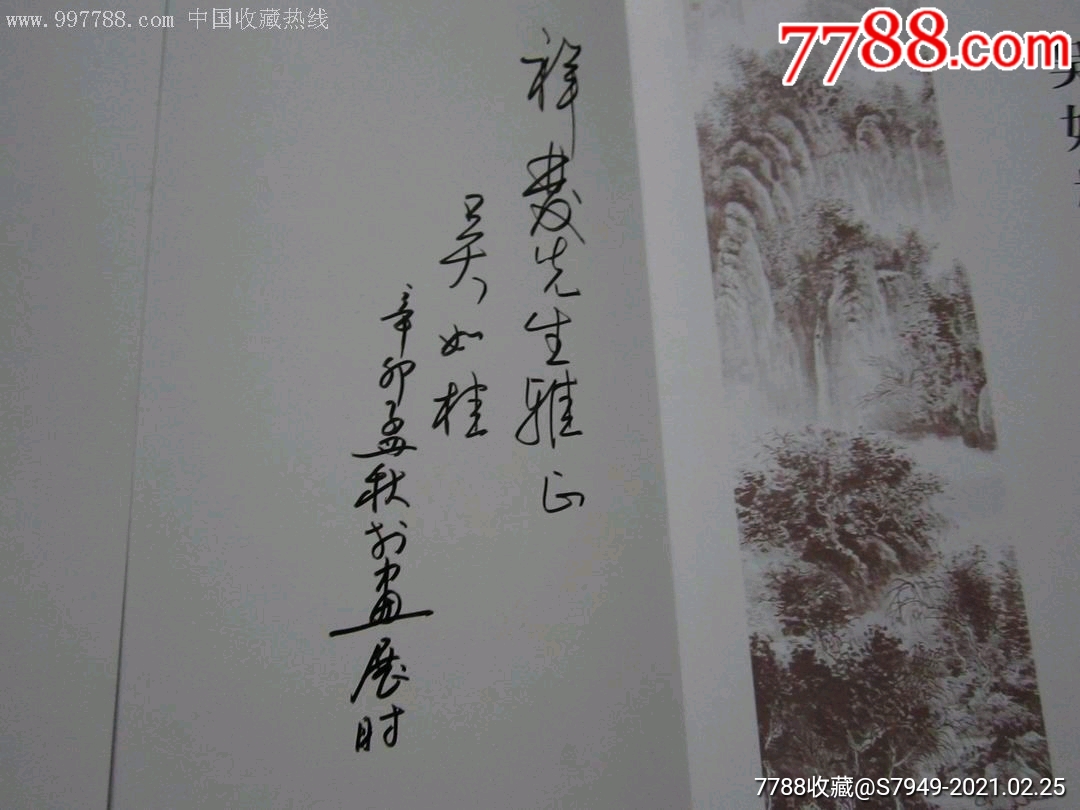 www.997788.com 中国收藏热线
7788.com
祥发先生雅正
吴如桂
辛卯孟秋于画展时
吴如
7788收藏@S7949-2021.02.25